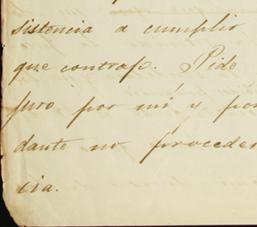 sistencia a cumplir
que contrape. Pido
juro por mí y por
dante no proceder
cia.